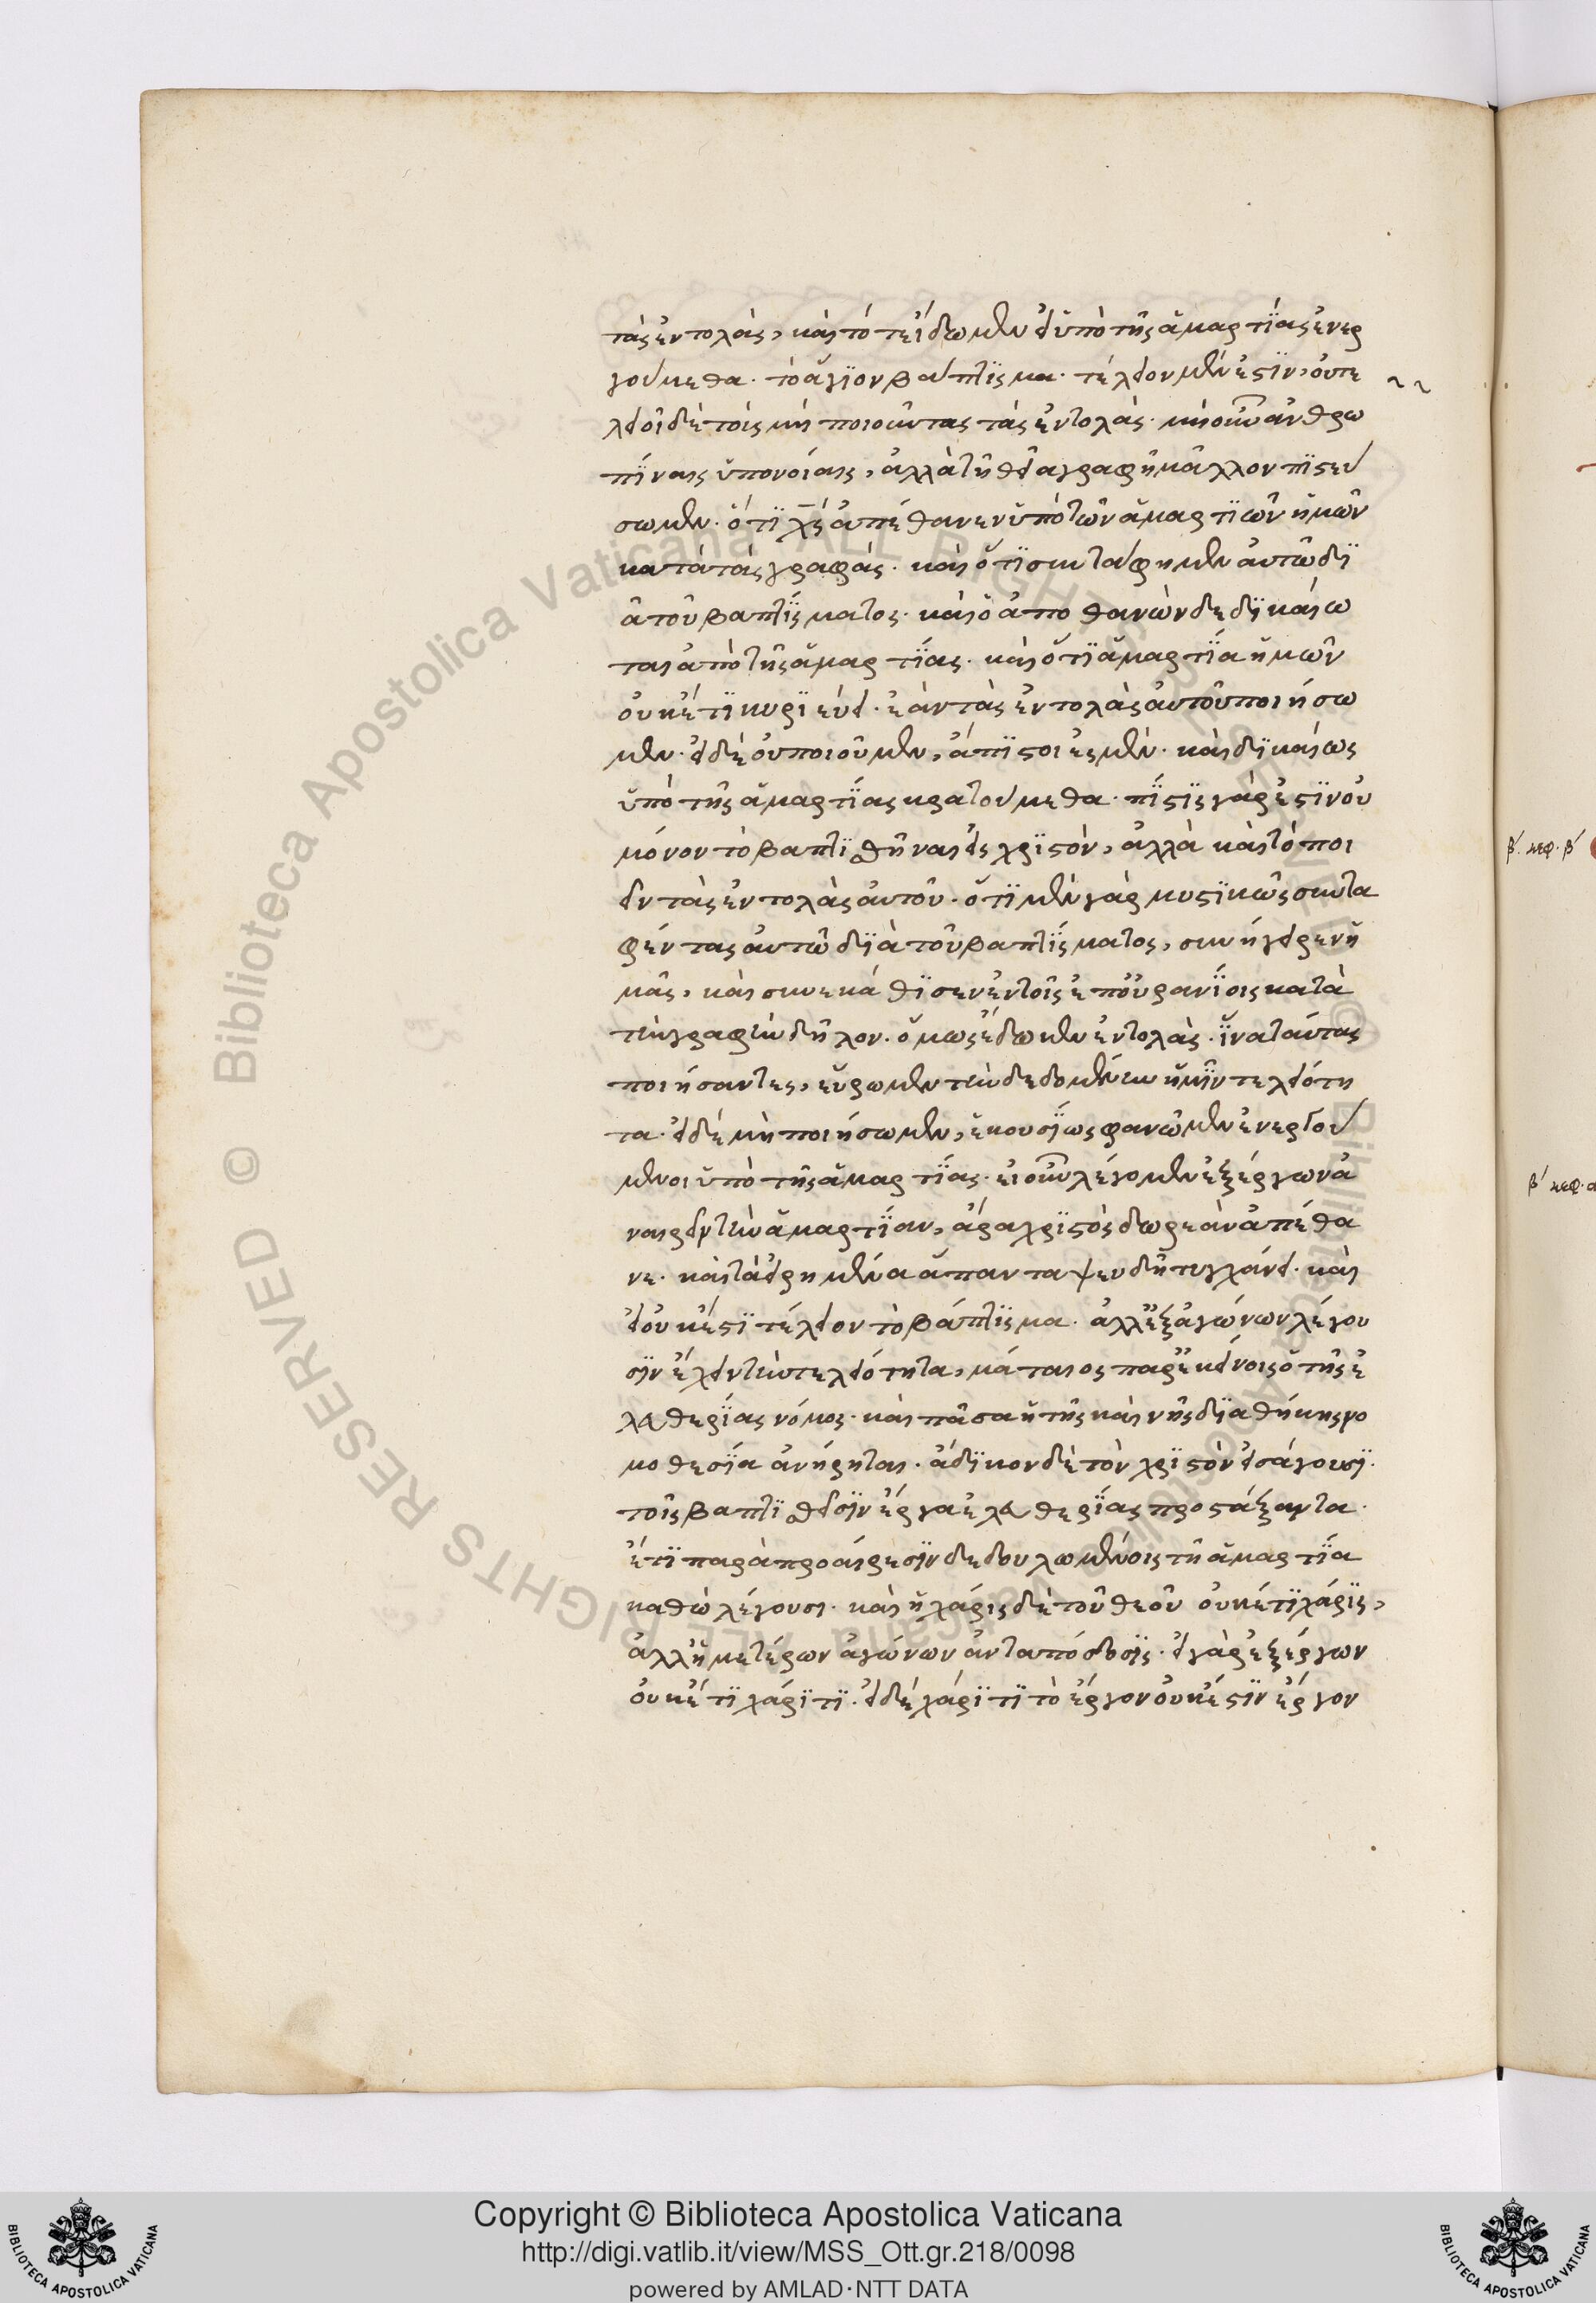 τὰς ἐντολὰς, καὶ τότε ἴδωμεν εἰ ὑπὸ τῆς ἁμαρτίας ἐνερ
γούμεθα. τὸ ἅγιον βάπτισμα. τέλειον μέν ἐστιν, οὐ τε
λειοῖ δὲ τοῖς μὴ ποιοῦντας τὰς ἐντολὰς. μὴ οὖν ἀνθρω
πίναις ὑπονοίαις, ἀλλὰ τῆ θεία γραφῆ μᾶλλον πιστεύ
σωμεν. ὅτι χς ἀπέθανεν ὑπὸ τῶν ἁμαρτιῶν ἡμῶν
κατὰ τὰς γραφάς. καὶ ὅτι συνετάφημεν αὐτῶ δι
ὰ τοῦ βαπτίσματος. καὶ ὁ ἀποθανὼν δεδικαίω
ται ἀπὸ τῆς ἁμαρτίας. καὶ ὅτι ἁμαρτία ἡμῶν
οὐκέτι κυριεύει. ἐὰν τὰς ἐντολὰς αὐτοῦ ποιήσω
μεν. εἰ δὲ οὐ ποιοῦμεν, ἄπιστοι ἐσμὲν. καὶ δικαίως
ὑπὸ τῆς ἁμαρτίας κρατούμεθα. πίστις γάρ ἐστιν οὐ
μόνον τὸ βαπτισθῆναι εἰς χριστὸν, ἀλλὰ καὶ τὸ ποι
εῖν τὰς ἐντολὰς αὐτοῦ. ὅτι μὲν γὰρ μυστικῶς συντα
φέντας αὐτῶ διὰ τοῦ βαπτίσματος, συνήγειρεν ἡ
μᾶς, καὶ συνεκάθισεν ἐν τοῖς ἐπουρανίοις κατὰ
τὴν γραφὴν δῆλον. ὅμως ἔδωκεν ἐντολὰς. ἵνα ταύτας
ποιήσαντες, εὕρωμεν τὴν δεδομένην ἡμῖν τελειότη
τα. εἰ δὲ μὴ ποιήσωμεν, ἑκουσίως φανῶμεν ἐνεργού
μενοι ὑπὸ τῆς ἁμαρτίας. εἰ οὖν λέγομεν ἐξ ἔργων ἀ
ναιρεῖν τὴν ἁμαρτίαν, ἄρα χριστὸς δωρεὰν ἀπέθα
νε. καὶ τὰ εἰρημένα ἅπαντα ψευδῆ τυγχάνει. καὶ
εἰ οὐκ ἔστι τέλειον τὸ βάπτισμα. ἀλλ' ἐξ ἀγώνων λέγου
σιν ἔχειν τὴν τελειότητα, μάταιος παρ' ἐκείνοις ὁ τῆς ἐ
λευθερίας νόμος. καὶ πᾶσα ἡ τῆς καινῆς διαθήκης νο
μοθεσία ἀνήρηται. ἄδικον δὲ τὸν χριστὸν εἰσάγουσι.
τοῖς βαπτισθεῖσιν ἔργα ἐλευθερίας προστάξαντα.
ἔτι παρὰ προαίρεσιν δεδουλωμένοις τῆ ἁμαρτία
καθὼ λέγουσι. καὶ ἡ χάρις δὲ τοῦ θεοῦ οὐκέτι χάρις,
ἀλλ' ἡμετέρων ἀγώνων ἀνταπόδοσις. εἰ γὰρ ἐξ ἔργων
οὐκέτι χάριτι. εἰ δὲ χάριτι τὸ ἔργον οὐκ ἔστιν ἔργον
β΄. κεφ. β΄
β΄ κεφ. α
Copyright © Biblioteca Apostolica Vaticana
http://digi.vatlib.it/view/MSS_Ott.gr.218/0098
powered by AMLAD·NTT DATA
BIBLIOTECA APOSTOLICA VATICANA
BIBLIOTECA APOSTOLICA VATICANA
© Biblioteca Apostolica Vaticana ALL RIGHTS RESERVED © Biblioteca Apostolica Vaticana ALL RIGHTS RESERVED